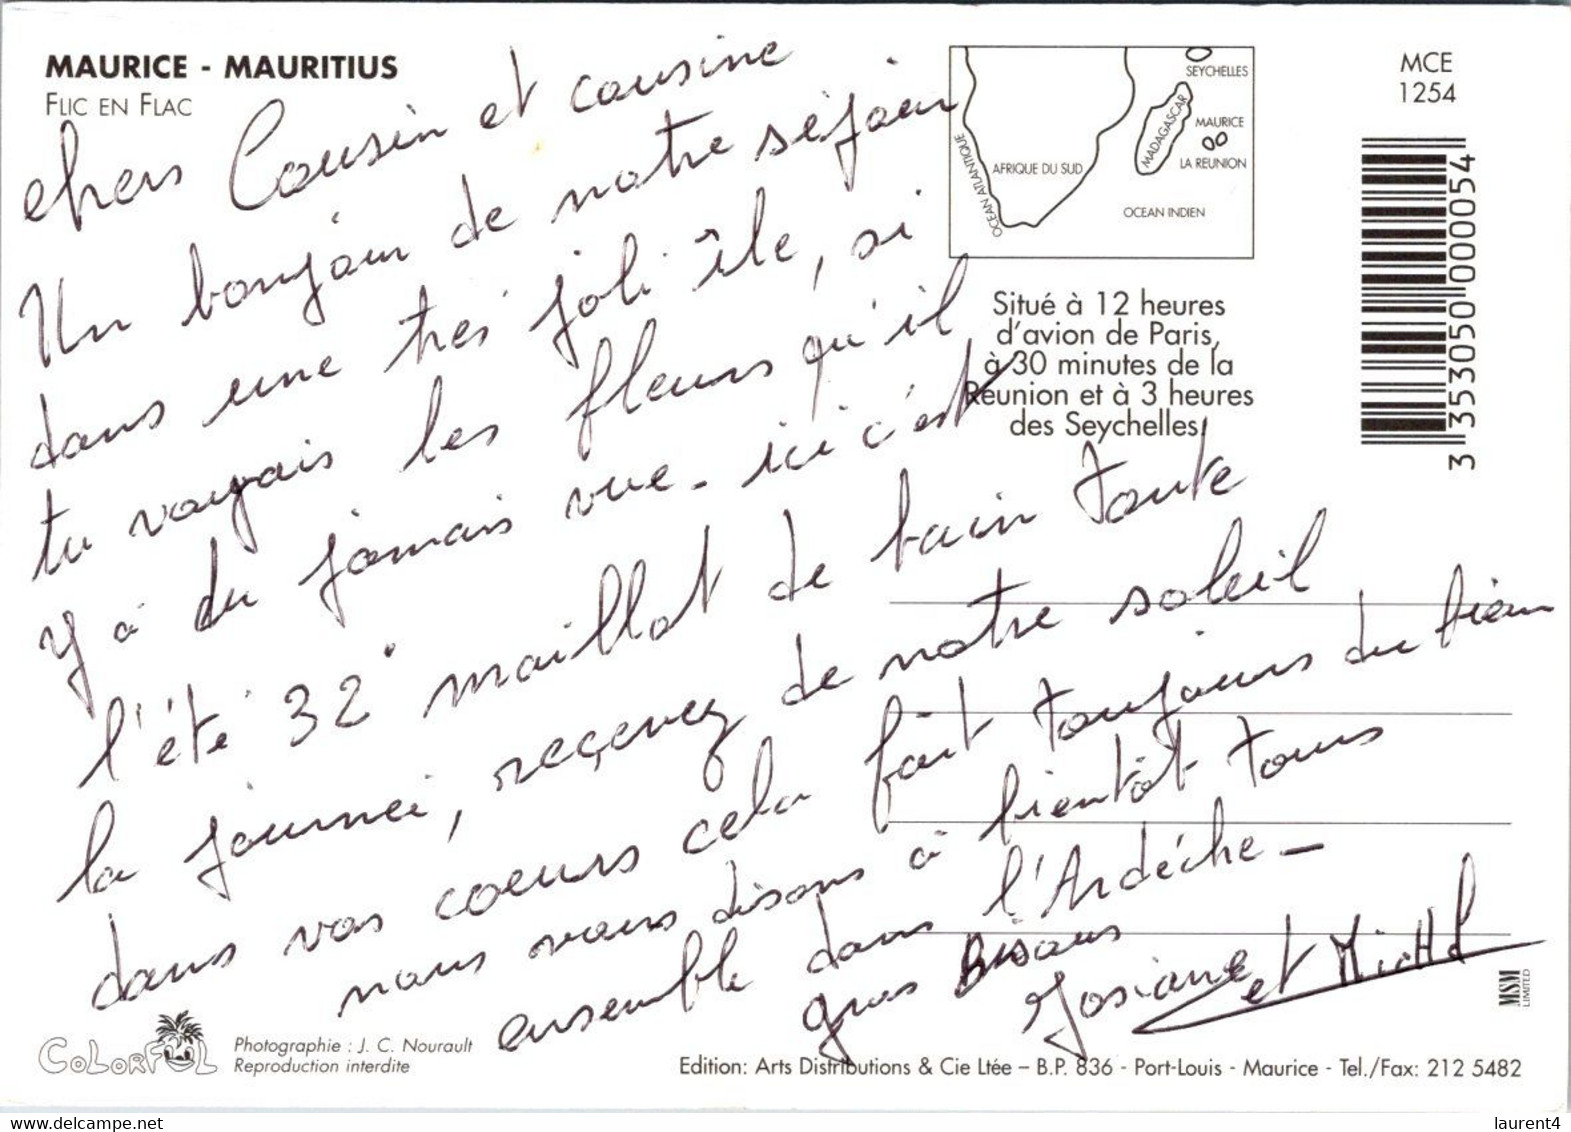 MAURICE - MAURITIUS
FLIC EN FLAC
chers Cousin et cousine
Un bonjour de notre séjour
dans une trés joli île, si
tu voyais les fleurs qu'il
y à du jamais vue - ici c'est
l'été 32° maillot de bain toute
la journeé, reçevez de notre soleil
dans vos coeurs cela fait toujours du bien
nous vous disons à bientôt tous
ensemble dans l'Ardéche -
gros Bisous
Josiane et Michel
SEYCHELLES
MADAGASCAR
MAURICE
LA REUNION
OCEAN ATLANTIQUE
AFRIQUE DU SUD
OCEAN INDIEN
Situé à 12 heures
d'avion de Paris,
à 30 minutes de la
Réunion et à 3 heures
des Seychelles
MCE
1254
3 353050 000054
MSM
LIMITED
COLORFUL
Photographie : J. C. Nourault
Reproduction interdite
Edition: Arts Distributions & Cie Ltée – B.P. 836 - Port-Louis - Maurice - Tel./Fax: 212 5482
delcampe.net
laurent4